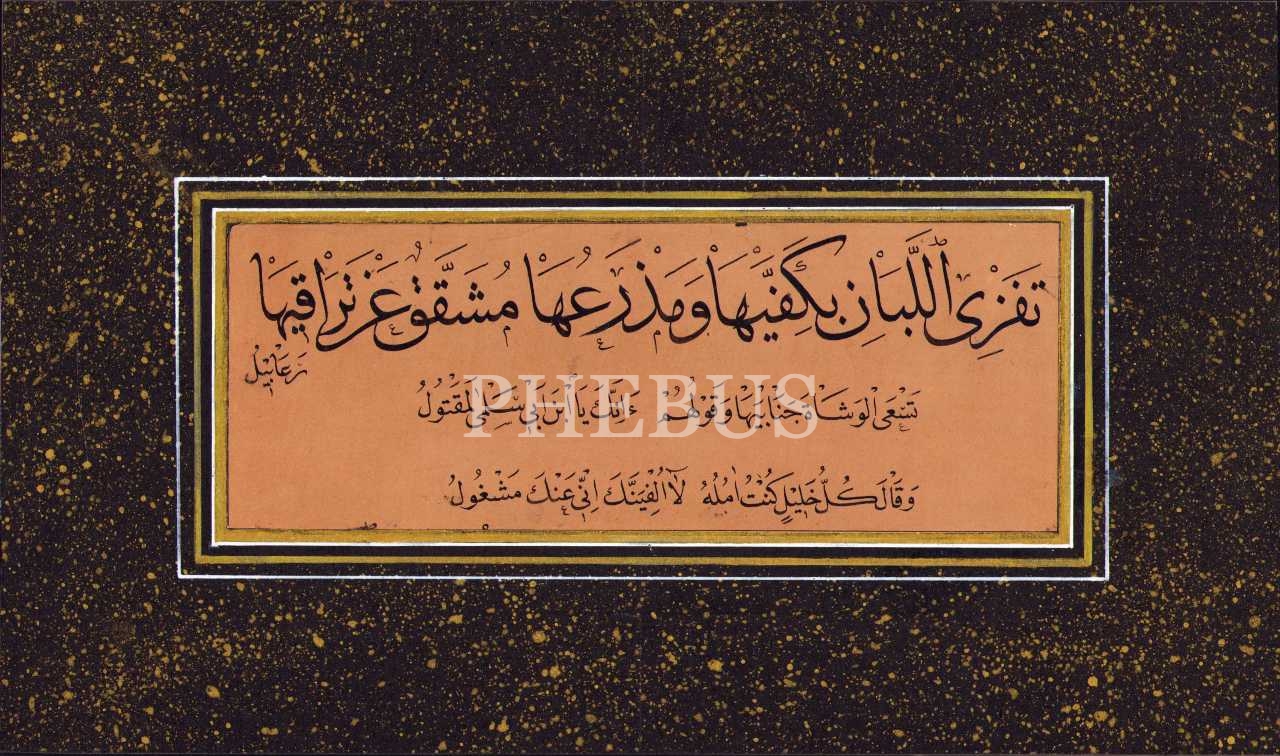 تَفْرِى اللَّبَانِ بِكَفَّيْهَا وَمَدْرَعُهَا مُشَقَّقٌ عَنْ تَرَاقِيهَا
رَعَابِيْلُ
تَسْعَى الْوُشَاةُ جَنَابَيْهَا وَقَوْلُهُمْ اِنَّكَ يَا ابْنَ اَبِى سُلْمٰى لَمَقْتُولُ
وَقَالَ كُلُّ خَلِيْلٍ كُنْتُ اٰمُلُهُ لَا اُلْفِيَنَّكَ اِنِّى عَنْكَ مَشْغُولُ
PHEBUS